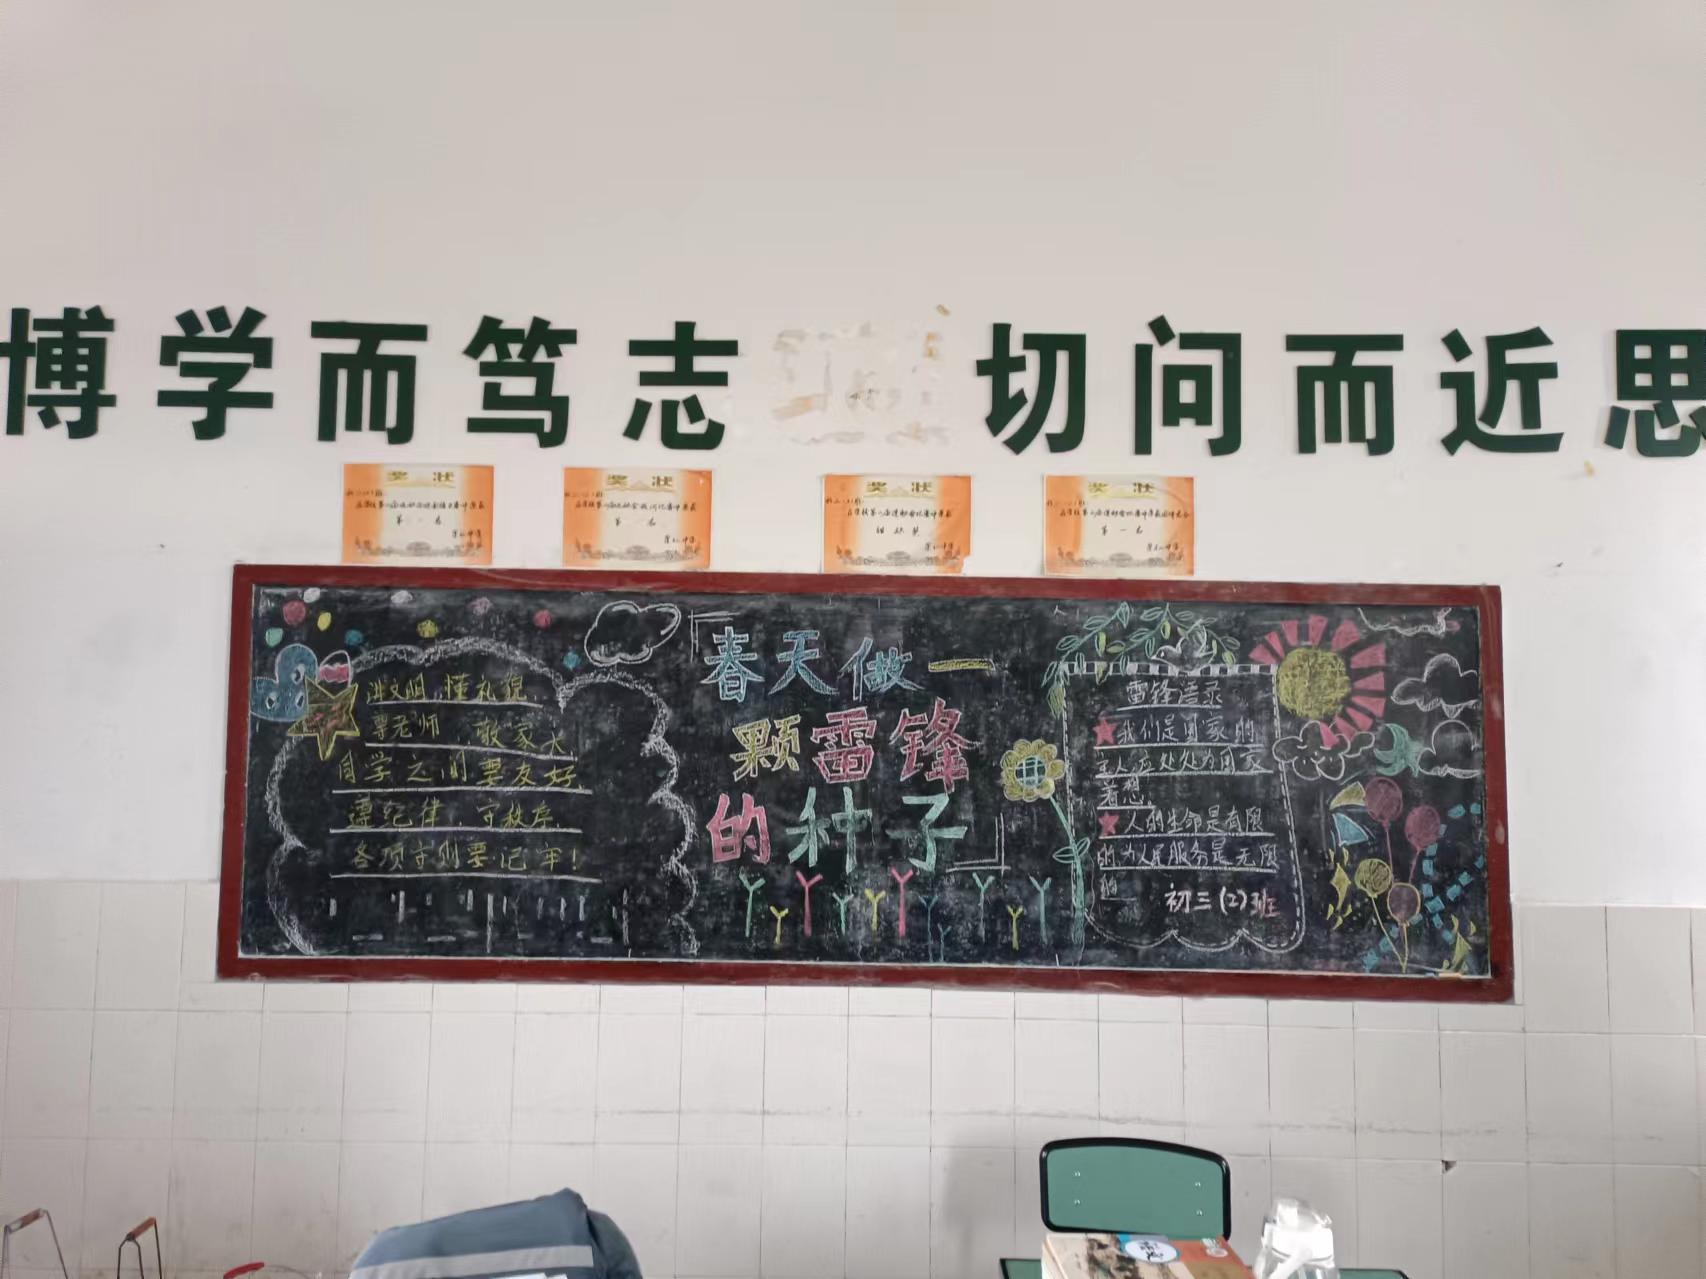 博学而笃志 切问而近思
奖状
奖状
奖状
奖状
第一名
第一名
组织奖
第一名
讲文明,懂礼貌,
尊老师 敬家长
同学之间要友好,
遵纪律,守秩序
各项守则要记牢!
「春天做一
颗雷锋
的种子」
雷锋语录
我们是国家的
主人,应处处为国家
着想。
人的生命是有限
的,为人民服务是无限
的
初三(2)班
语文